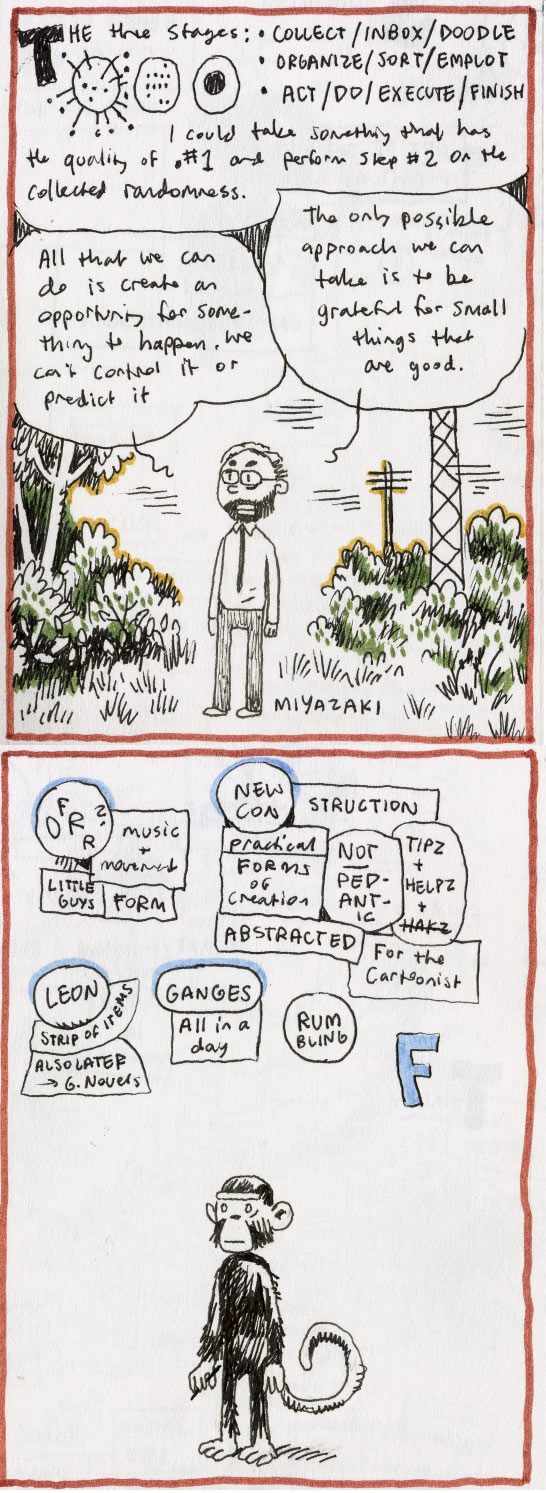 THE three Stages: • COLLECT/INBOX/DOODLE
• ORGANIZE/SORT/EMPLOT
• ACT/DO/EXECUTE/FINISH
I could take something that has
the quality of #1 and perform step #2 on the
collected randomness.
All that we can
do is create an
opportunity for some-
thing to happen. We
can't control it or
predict it
The only possible
approach we can
take is to be
grateful for small
things that
are good.
MIYAZAKI
music
+
movement
LITTLE
GUYS
FORM
NEW
CON
STRUCTION
practical
FORMS
OF
Creation
NOT
PED-
ANT-
IC
TIPZ
+
HELPZ
+
HAKZ
ABSTRACTED
For the
Cartoonist
LEON
STRIP OF ITEMS
ALSO LATER
→ G. Novels
GANGES
All in a
day
RUM
BLING
F